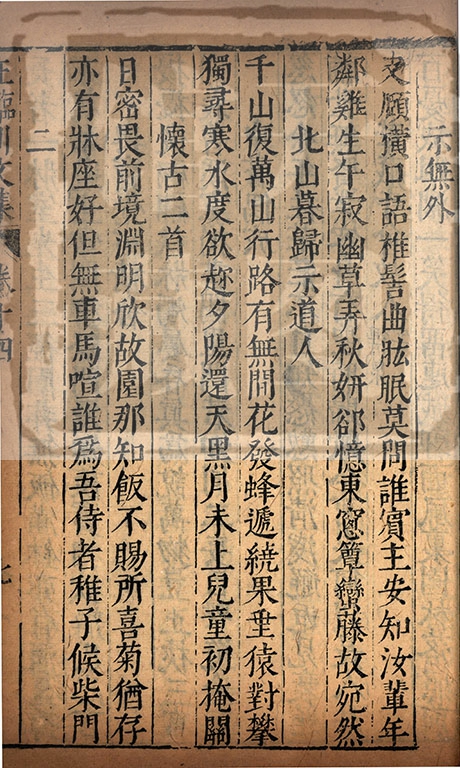 示無外
支頤橫口語椎髻曲肱眠莫問誰賓主安知汝輩年
鄰雞生午寂幽草弄秋妍卻憶東窻簟蠻藤故宛然
北山暮歸示道人
千山復萬山行路有無間花發蜂遞繞果垂猿對攀
獨尋寒水度欲趂夕陽還天黑月未上兒童初掩關
懷古二首
日密畏前境淵明欣故園那知飯不賜所喜菊猶存
亦有牀座好但無車馬喧誰爲吾侍者稚子候柴門
二
王臨川文集 卷廿四